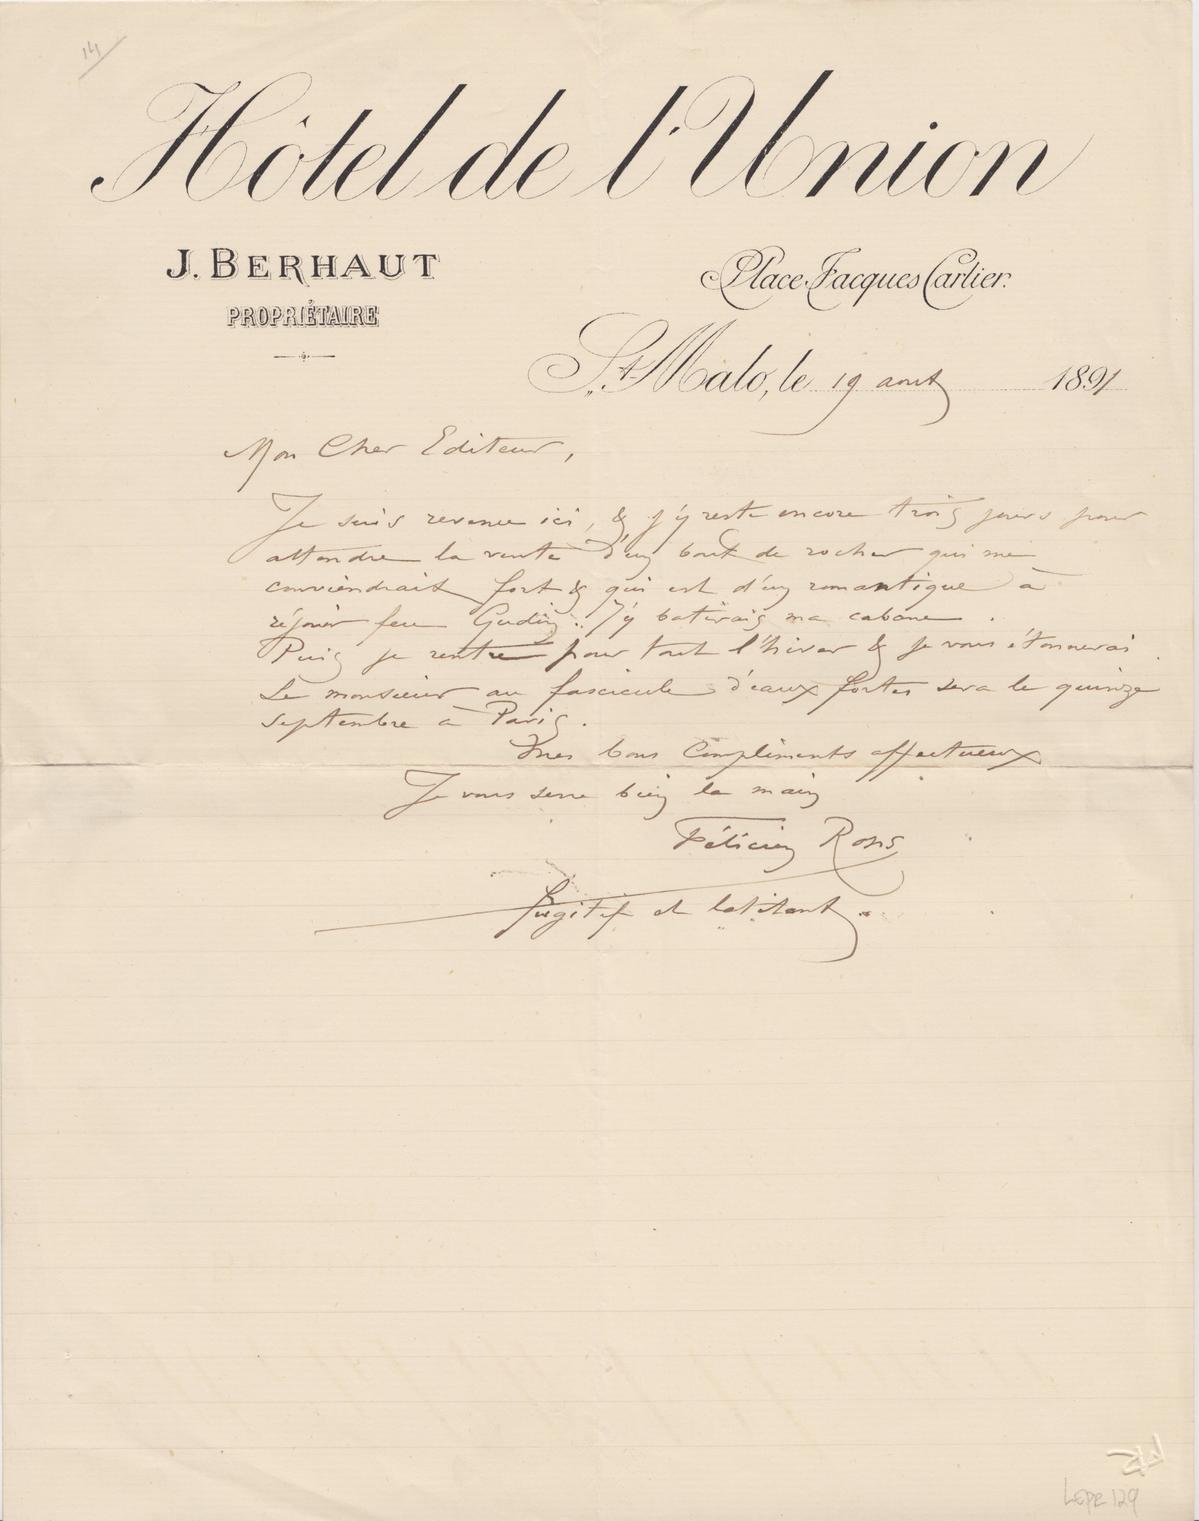 14
Hôtel de l'Union
J. BERHAUT
PROPRIÉTAIRE
Place Jacques Cartier.
St. Malo, le 19 aout 1891
Mon Cher Editeur,
Je suis revenu ici, & j'y reste encore trois jours pour
attendre la vente d'un bout de rocher qui me
conviendrait fort & qui est d'un romantique à
réjouir feu Gudin.. J'y batirais ma cabane.
Puis je rentre pour tout l'hiver & je vous étonnerai.
Le monsieur au fascicule d'eaux fortes sera le quinze
septembre à Paris.
Mes bons Compliments affectueux
Je vous serre bien la main
Félicien Rops
fugitif et latitant.
LEpr 129